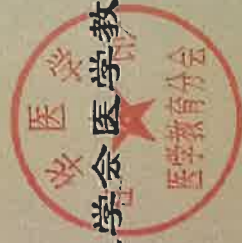 学会医学教
中华医学会
医学教育分会